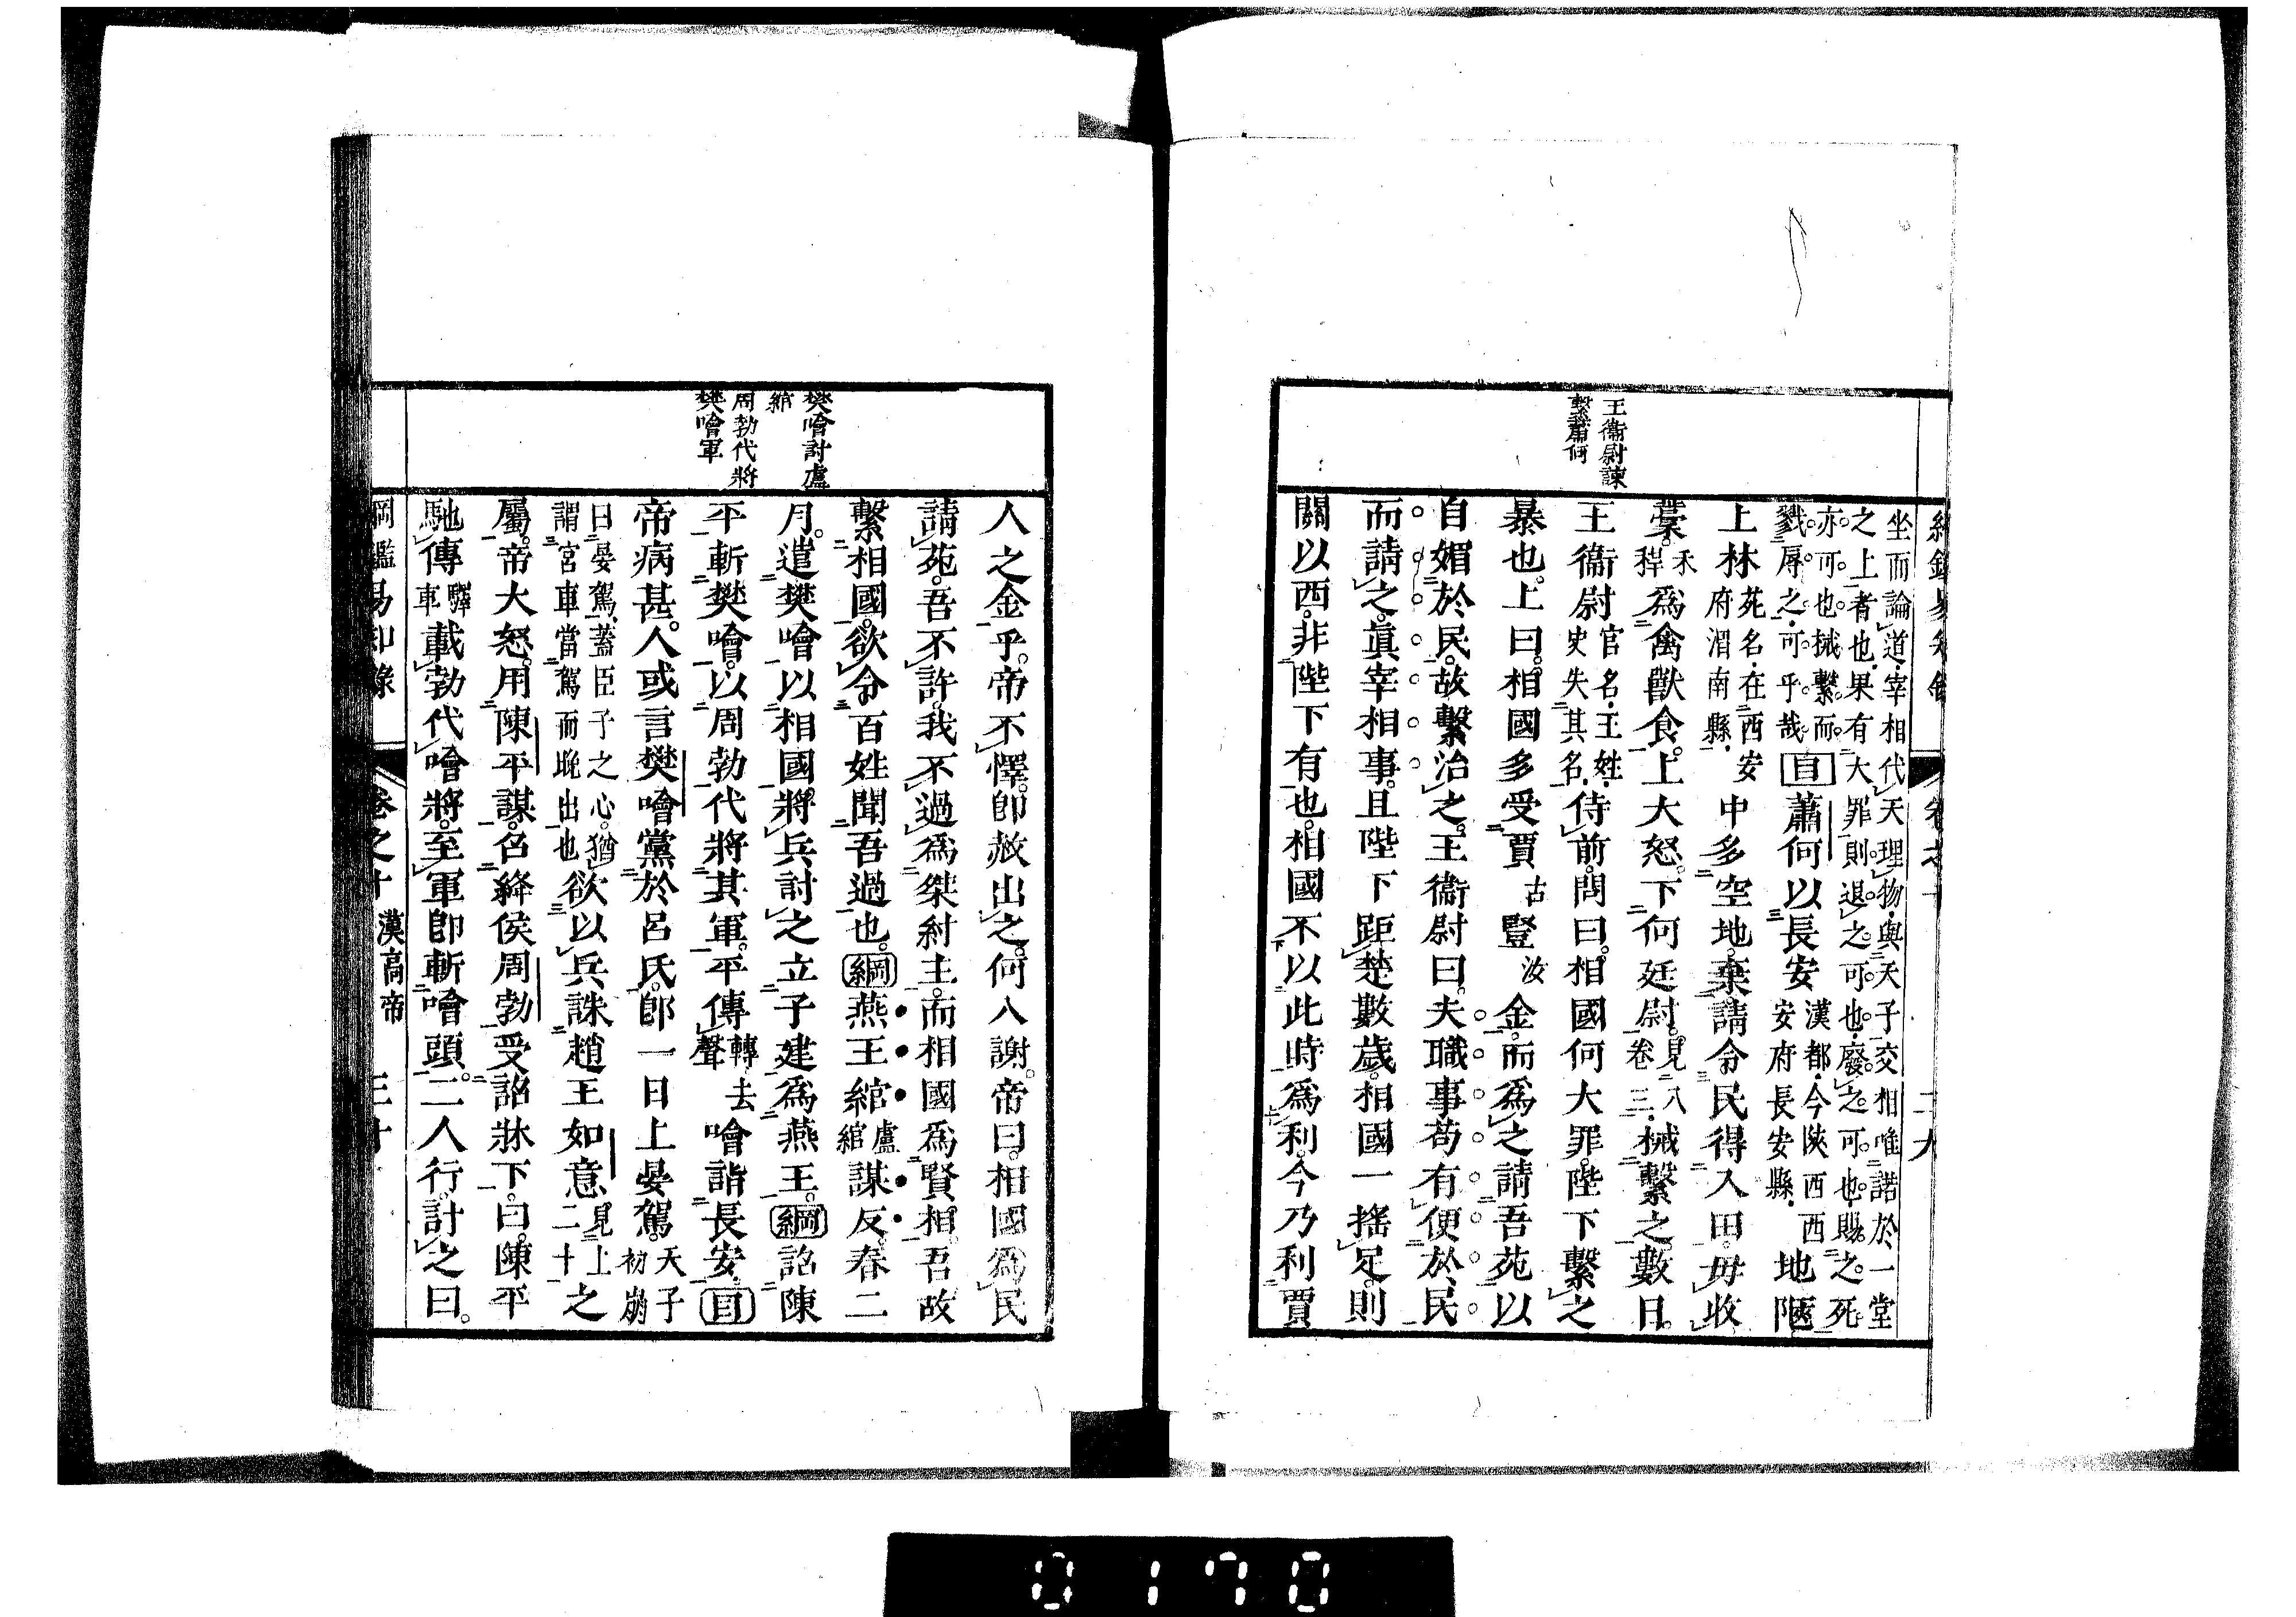 王衞尉諫
繫蕭何
坐而論道宰相代天理物與天子交相唯諾於一堂
之上者也果有大罪則退之可也廢之可也賜之死
亦可也械繫而
戮辱之可乎哉目蕭何以長安漢都今陝西西安府長安縣地陿
上林苑名在西安府渭南縣中多空地棄請令民得入田毋收
藁禾稈為禽獸食上大怒下何廷尉見八卷三械繫之數日
王衞尉官名王姓史失其名侍前問曰相國何大罪陛下繫之
暴也上曰相國多受賈古豎汝金而為之請吾苑以
自媚於民故繫治之王衞尉曰夫職事苟有便於民
而請之眞宰相事且陛下距楚數歲相國一搖足則
關以西非陛下有也相國不以此時為利今乃利賈
二十九
樊噲討盧
綰
周勃代將
樊噲軍
人之金乎帝不懌卽赦出之何入謝帝曰相國為民
請苑吾不許我不過為桀紂主而相國為賢相吾故
繫相國欲令百姓聞吾過也綱燕王綰盧綰謀反春二
月遣樊噲以相國將兵討之立子建為燕王綱詔陳
平斬樊噲以周勃代將其軍平傳轉去聲噲詣長安目
帝病甚人或言樊噲黨於呂氏卽一日上晏駕天子初崩
曰晏駕蓋臣子之心猶謂宮車當駕而晚出也欲以兵誅趙王如意見上二十之
屬帝大怒用陳平謀召絳侯周勃受詔牀下曰陳平
馳傳驛車載勃代噲將至軍卽斬噲頭二人行計之曰
綱鑑易知錄 卷之十 漢高帝 三十
0170